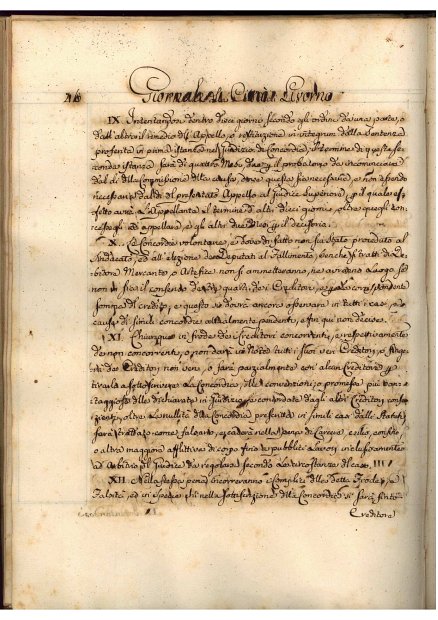 IX. Intentandosi dentro dieci giorni secondo gli ordini da una parte, o
dall'altra il rimedio dell'Appello, o restituzione in integrum dalla Sentenza
proferita in prima istanza nel Giudizio di Concordia, il termine di questa se-
conda istanza sarà di quattro Mesi
dal dì della commissione della causa, dove questa sia necessaria, e non essendo
necessaria dal dì del presentato Appello al Giudice Superiore, per il quale ef-
fetto avrà l'Appellante il termine di altri dieci giorni, oltre quegli con-
cessigli ad appellare, e gli altri due Mesi per il decisorio.
X. Le Concordie volontarie, e
Sindacato, ed all'elezione de Deputati al Fallimento, benchè si tratti di De-
bitore Mercante, o Artefice non si ammetteranno, nè avranno luogo se
non vi sia il consenso
somme di credito, e questo si dovrà ancora osservare in tutti i casi, e
cause di simili concordie attualmente pendenti, e fin qui non decise.
XI. Chiunque in frode dei Creditori concorrenti, e respettivamente
da non concorrente, o non darà in Nota tutti i suoi veri Creditori, o finge-
rà dei Creditori non veri, o farà parzialmente con alcun Creditore per
tirarlo a sottoscrivere la Concordia, delle convenzioni, o promesse più van-
taggiose delle dichiarate in Giudizio, e secondate dagli altri Creditori consen-
zienti, oltre la nullità della Concordia prescritta in simili casi dalli Statuti
sarà trattato come falsario, e caderà nella pena di Carcere, esilio, confino,
o altra maggiore afflittiva di corpo fino a pubblici Lavori inclusivamente
ad Arbitrio del Giudice da regolarsi secondo le circostanze del caso.
XII. Nella stessa pena incorreranno i Complici della detta Frode, e
Falsità, ed in specie chi nella sottoscrizione della Concordia si sarà finto
Creditore